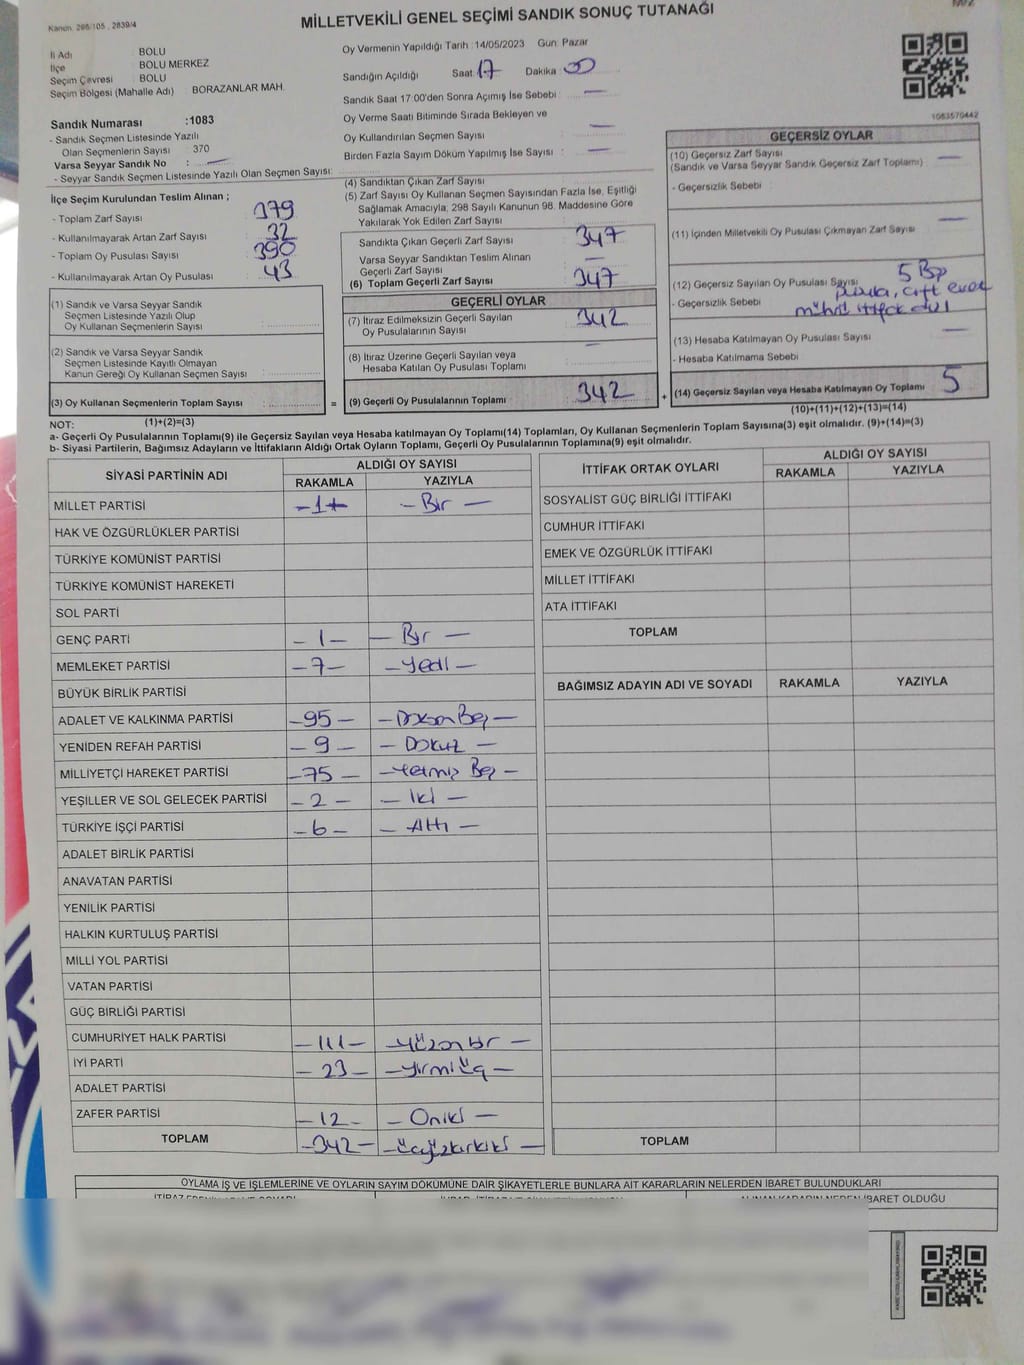 MİLLETVEKİLİ GENEL SEÇİMİ SANDIK SONUÇ TUTANAĞI
İl Adı BOLU
İlçe BOLU MERKEZ
Seçim Çevresi BOLU
Seçim Bölgesi (Mahalle Adı) BORAZANLAR MAH.
Oy Vermenin Yapıldığı Tarih :14/05/2023 Gün: Pazar
Sandığın Açıldığı Saat 17 Dakika 00
Sandık Saat 17:00'den Sonra Açımış İse Sebebi : —
Oy Verme Saati Bitiminde Sırada Bekleyen ve
Oy Kullandırılan Seçmen Sayısı —
Birden Fazla Sayım Döküm Yapılmış İse Sayısı : —
1083570442
Sandık Numarası :1083
- Sandık Seçmen Listesinde Yazılı
Olan Seçmenlerin Sayısı : 370
Varsa Seyyar Sandık No : —
- Seyyar Sandık Seçmen Listesinde Yazılı Olan Seçmen Sayısı:
İlçe Seçim Kurulundan Teslim Alınan ;
- Toplam Zarf Sayısı 379
- Kullanılmayarak Artan Zarf Sayısı 32
- Toplam Oy Pusulası Sayısı 390
- Kullanılmayarak Artan Oy Pusulası 43
(1) Sandık ve Varsa Seyyar Sandık
Seçmen Listesinde Yazılı Olup
Oy Kullanan Seçmenlerin Sayısı :
(2) Sandık ve Varsa Seyyar Sandık
Seçmen Listesinde Kayıtlı Olmayan
Kanun Gereği Oy Kullanan Seçmen Sayısı :
(3) Oy Kullanan Seçmenlerin Toplam Sayısı : =
(4) Sandıktan Çıkan Zarf Sayısı :
(5) Zarf Sayısı Oy Kullanan Seçmen Sayısından Fazla İse, Eşitliği
Sağlamak Amacıyla, 298 Sayılı Kanunun 98. Maddesine Göre
Yakılarak Yok Edilen Zarf Sayısı :
Sandıkta Çıkan Geçerli Zarf Sayısı 347
Varsa Seyyar Sandıktan Teslim Alınan
Geçerli Zarf Sayısı —
(6) Toplam Geçerli Zarf Sayısı 347
GEÇERLİ OYLAR
(7) İtiraz Edilmeksizin Geçerli Sayılan
Oy Pusulalarının Sayısı 342
(8) İtiraz Üzerine Geçerli Sayılan veya
Hesaba Katılan Oy Pusulası Toplamı —
(9) Geçerli Oy Pusulalarının Toplamı 342 +
GEÇERSİZ OYLAR
(10) Geçersiz Zarf Sayısı —
(Sandık ve Varsa Seyyar Sandık Geçersiz Zarf Toplamı)
- Geçersizlik Sebebi :
(11) İçinden Milletvekili Oy Pusulası Çıkmayan Zarf Sayısı —
(12) Geçersiz Sayılan Oy Pusulası Sayısı 5 Boş
- Geçersizlik Sebebi pusula, çift evet
mühür ittifak
(13) Hesaba Katılmayan Oy Pusulası Sayısı —
- Hesaba Katılmama Sebebi
(14) Geçersiz Sayılan veya Hesaba Katılmayan Oy Toplamı 5
(10)+(11)+(12)+(13)=(14)
NOT: (1)+(2)=(3)
a- Geçerli Oy Pusulalarının Toplamı(9) ile Geçersiz Sayılan veya Hesaba katılmayan Oy Toplamı(14) Toplamları, Oy Kullanan Seçmenlerin Toplam Sayısına(3) eşit olmalıdır. (9)+(14)=(3)
b- Siyasi Partilerin, Bağımsız Adayların ve İttifakların Aldığı Ortak Oyların Toplamı, Geçerli Oy Pusulalarının Toplamına(9) eşit olmalıdır.
SİYASİ PARTİNİN ADI ALDIĞI OY SAYISI
RAKAMLA YAZIYLA
MİLLET PARTİSİ -1- - Bir -
HAK VE ÖZGÜRLÜKLER PARTİSİ
TÜRKİYE KOMÜNİST PARTİSİ
TÜRKİYE KOMÜNİST HAREKETİ
SOL PARTİ
GENÇ PARTİ -1- - Bir -
MEMLEKET PARTİSİ -7- - Yedi -
BÜYÜK BİRLİK PARTİSİ
ADALET VE KALKINMA PARTİSİ -95- - Doksan Beş -
YENİDEN REFAH PARTİSİ -9- - Dokuz -
MİLLİYETÇİ HAREKET PARTİSİ -75- - Yetmiş Beş -
YEŞİLLER VE SOL GELECEK PARTİSİ -2- - İki -
TÜRKİYE İŞÇİ PARTİSİ -6- - Altı -
ADALET BİRLİK PARTİSİ
ANAVATAN PARTİSİ
YENİLİK PARTİSİ
HALKIN KURTULUŞ PARTİSİ
MİLLİ YOL PARTİSİ
VATAN PARTİSİ
GÜÇ BİRLİĞİ PARTİSİ
CUMHURİYET HALK PARTİSİ -111- - Yüzonbir -
İYİ PARTİ -23- - Yirmiüç -
ADALET PARTİSİ
ZAFER PARTİSİ -12- - Oniki -
TOPLAM -342- - Üçyüzkırkiki -
İTTİFAK ORTAK OYLARI ALDIĞI OY SAYISI
RAKAMLA YAZIYLA
SOSYALİST GÜÇ BİRLİĞİ İTTİFAKI
CUMHUR İTTİFAKI
EMEK VE ÖZGÜRLÜK İTTİFAKI
MİLLET İTTİFAKI
ATA İTTİFAKI
TOPLAM
BAĞIMSIZ ADAYIN ADI VE SOYADI RAKAMLA YAZIYLA
TOPLAM
OYLAMA İŞ VE İŞLEMLERİNE VE OYLARIN SAYIM DÖKÜMÜNE DAİR ŞİKAYETLERLE BUNLARA AİT KARARLARIN NELERDEN İBARET BULUNDUKLARI
ALINAN KARARIN NEDEN İBARET OLDUĞU